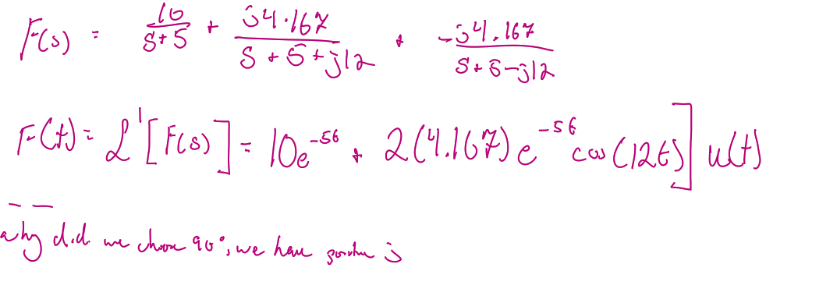 F(s) = 10/s+5 + j4.167/s+5+j12 + -j4.167/s+5-j12
F(t) = L⁻¹[F(s)] = 10e^-5t + 2(4.167)e^-5t cos(12t)] u(t)
why did we choose 90°, we have j